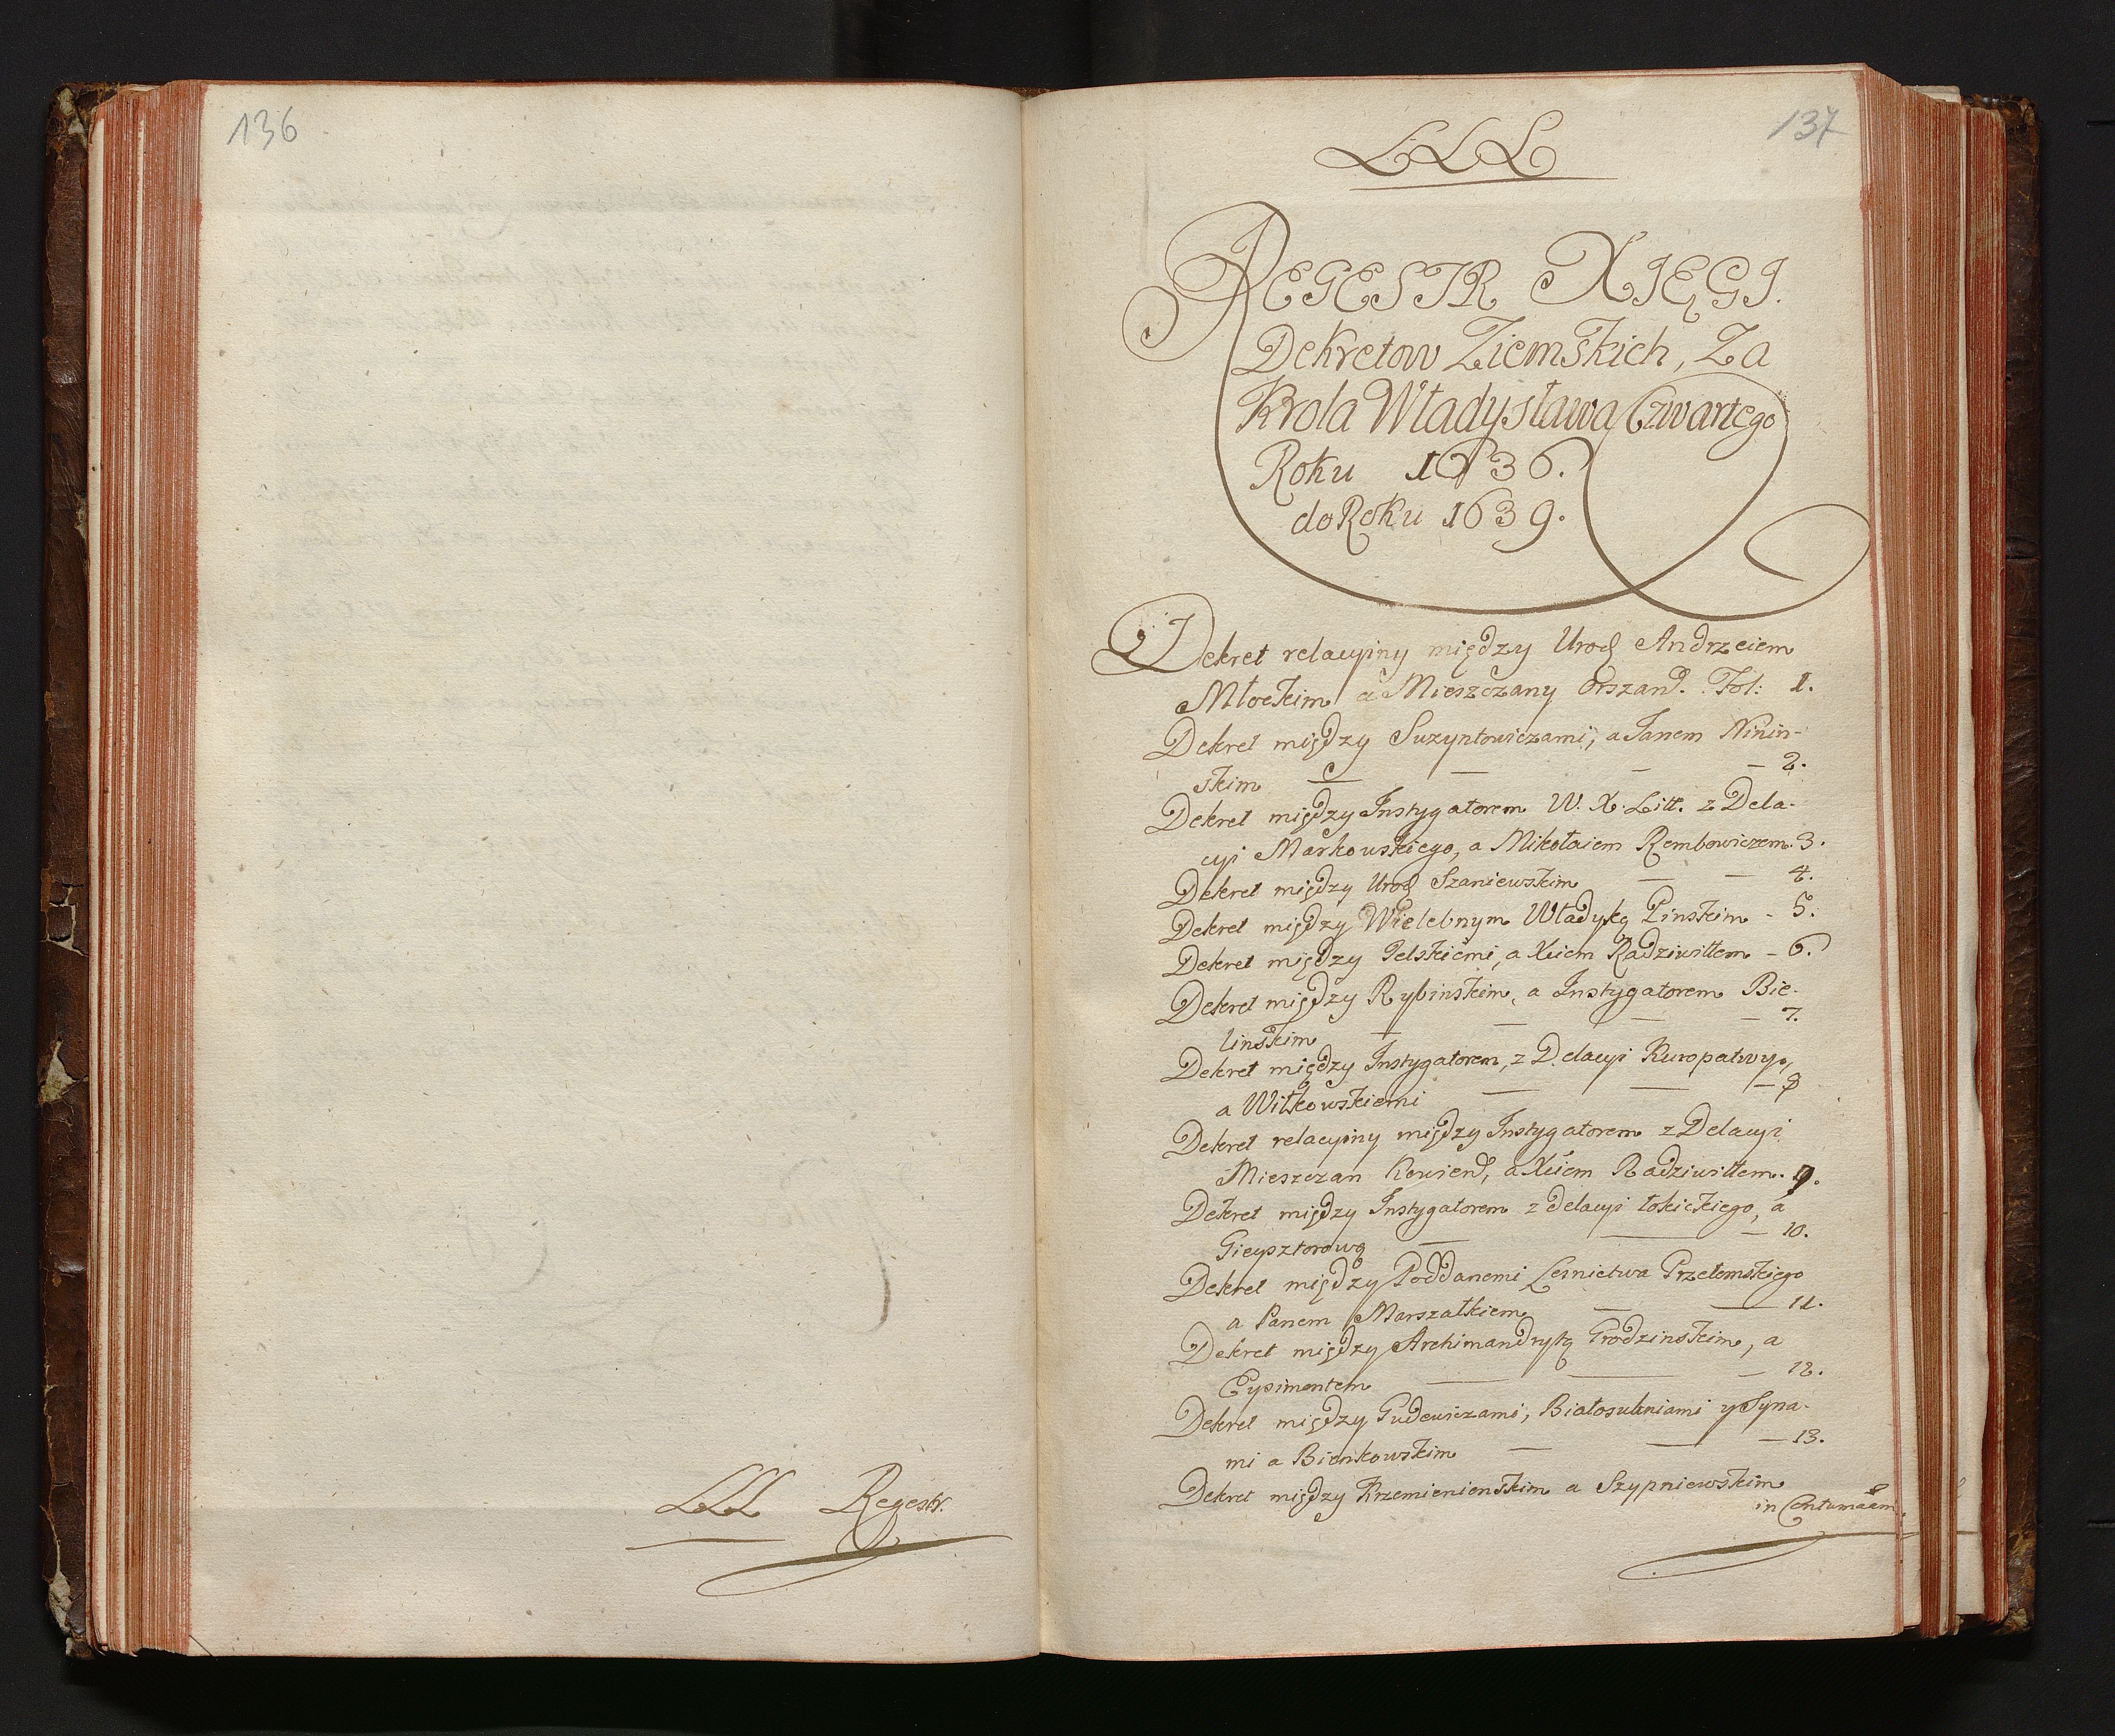 136
LLL Regestr.
137
LLL
REGESTR XIĘGI.
Dekretow Ziemskich, Za
Krola Władysława Czwartego
Roku 1636.
do Roku 1639.
Dekret relacyiny między Urod Andrzeiem
Młockim a Mieszczany Orszand. Fol: 1.
Dekret między Suzyntowiczami, a Janem Ninin-
skim — — — — 2.
Dekret między Instygatorem W. X. Litt. z Dela-
cyi Markowskiego, a Mikołaiem Rembowiczem. 3.
Dekret między Urod Szaniewskim — — 4.
Dekret między Wielebnym Władyką Pinskim - 5.
Dekret między Pelskiemi, a Xciem Radziwiłłem - 6.
Dekret między Rybinskim, a Instygatorem Bie-
linskim — — — — 7.
Dekret między Instygatorem, z Delacyi Kuropatwy,
a Witkowskiemi — — — 8
Dekret relacyiny między Instygatorem z Delacyi
Mieszczan Kowiend, a Xciem Radziwiłłem. 9.
Dekret między Instygatorem z delacyi łokickiego, a
Gieysztorową — — — 10.
Dekret między Poddanemi Lesnictwa Przełomskiego
a Panem Marszałkiem — — 11.
Dekret między Archimandrytą Grodzinskim, a
Eysimontem — — — 12.
Dekret między Gudewiczami, Białosukniami y Syna-
mi a Bienkowskim — — — 13.
Dekret między Krzemienienskim a Szypniewskim
in Contumaćm.